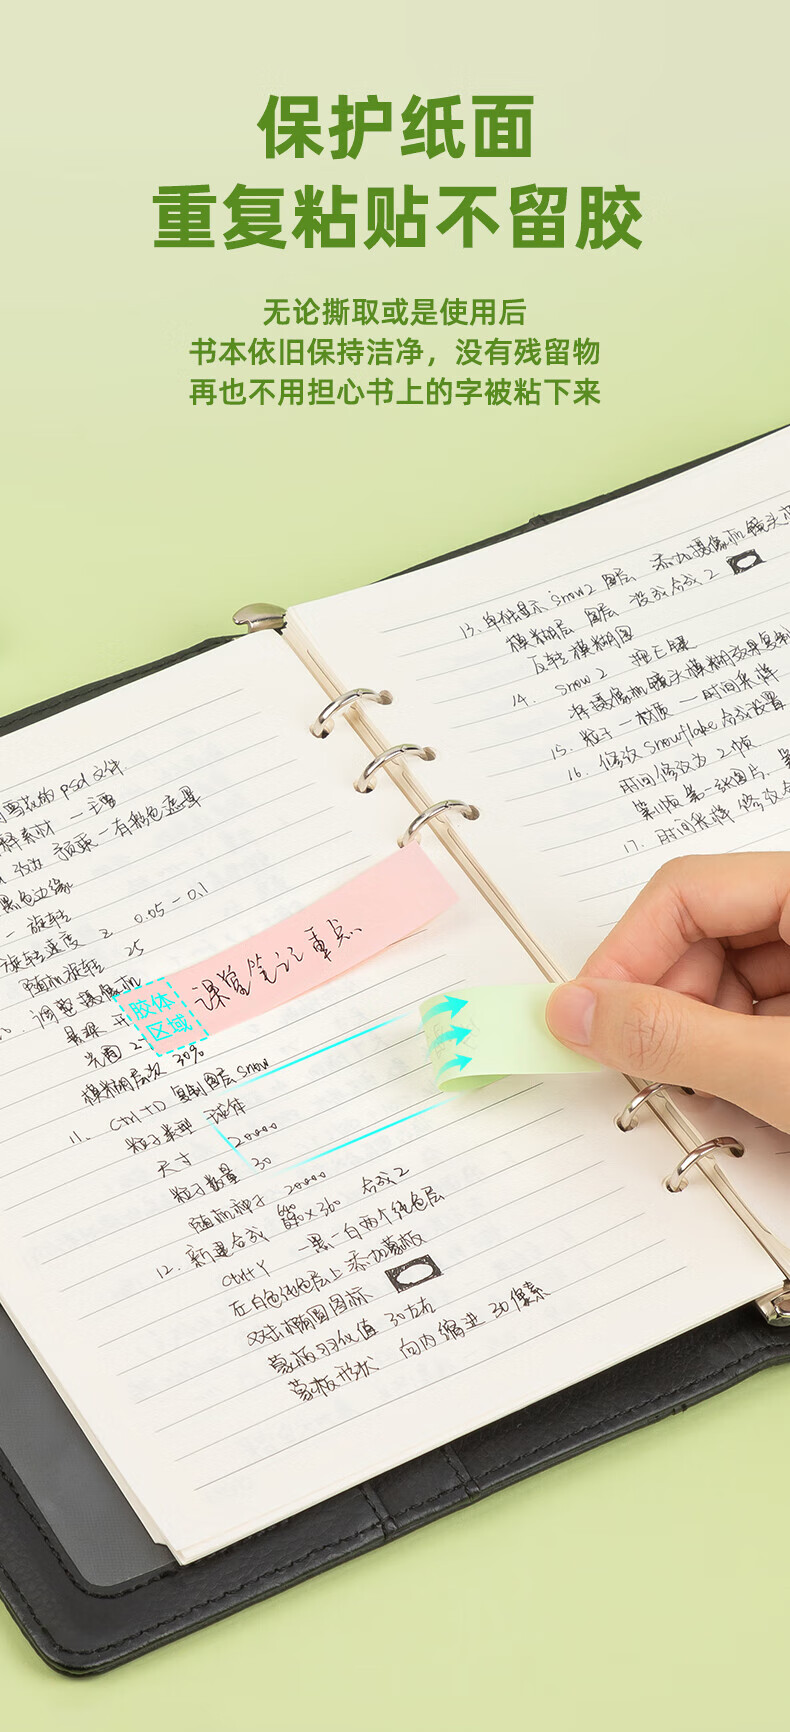 保护纸面
重复粘贴不留胶
无论撕取或是使用后
书本依旧保持洁净，没有残留物
再也不用担心书上的字被粘下来
13、单独显示 Snow2 图层 添加摄像机镜头模
模糊层 图层 设成合成2
反转模糊图
14. Snow2 按E键
将摄像机镜头模糊效果复制
15. 粒子一材质 一时间采样
16. 修改 Snowflake 合成设置
时间修改为2帧
第11帧第一张图片.
17. 时间采样 修改
雪花的psd文件
释素材 一
预乘一有彩色遮罩
黑色边缘
一 旋转
旋转速度 2 0.05-0.1
随机旋转 25
调整摄像机
景深
光圈 2
模糊层次 30%
课堂笔记重点
胶体
区域
11、Ctrl+D 复制图层Snow
粒子类型 球体
尺寸 20000
粒子数量 30
随机种子 20000
12、新建合成 ×360 合成2
Ctrl+Y 一黑一白两个纯色层
在白色纯色层上添加蒙板
双击椭圆图标
蒙板羽化值 30左右
蒙板形状 向内缩进30像素